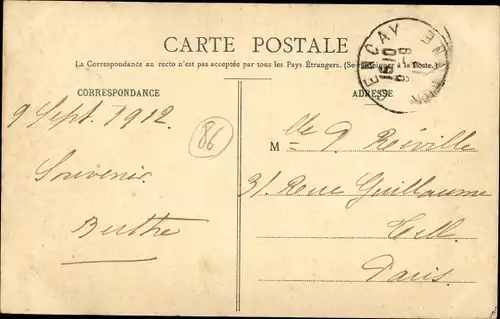 CARTE POSTALE
La Correspondance au recto n'est pas acceptée par tous les Pays Étrangers. (Se renseigner à la Poste.)
CORRESPONDANCE
ADRESSE
9 Sept. 1912.
Souvenir
Berthe
86
Mlle
31 Rue Guillaume
Tell.
Paris.
GENÇAY